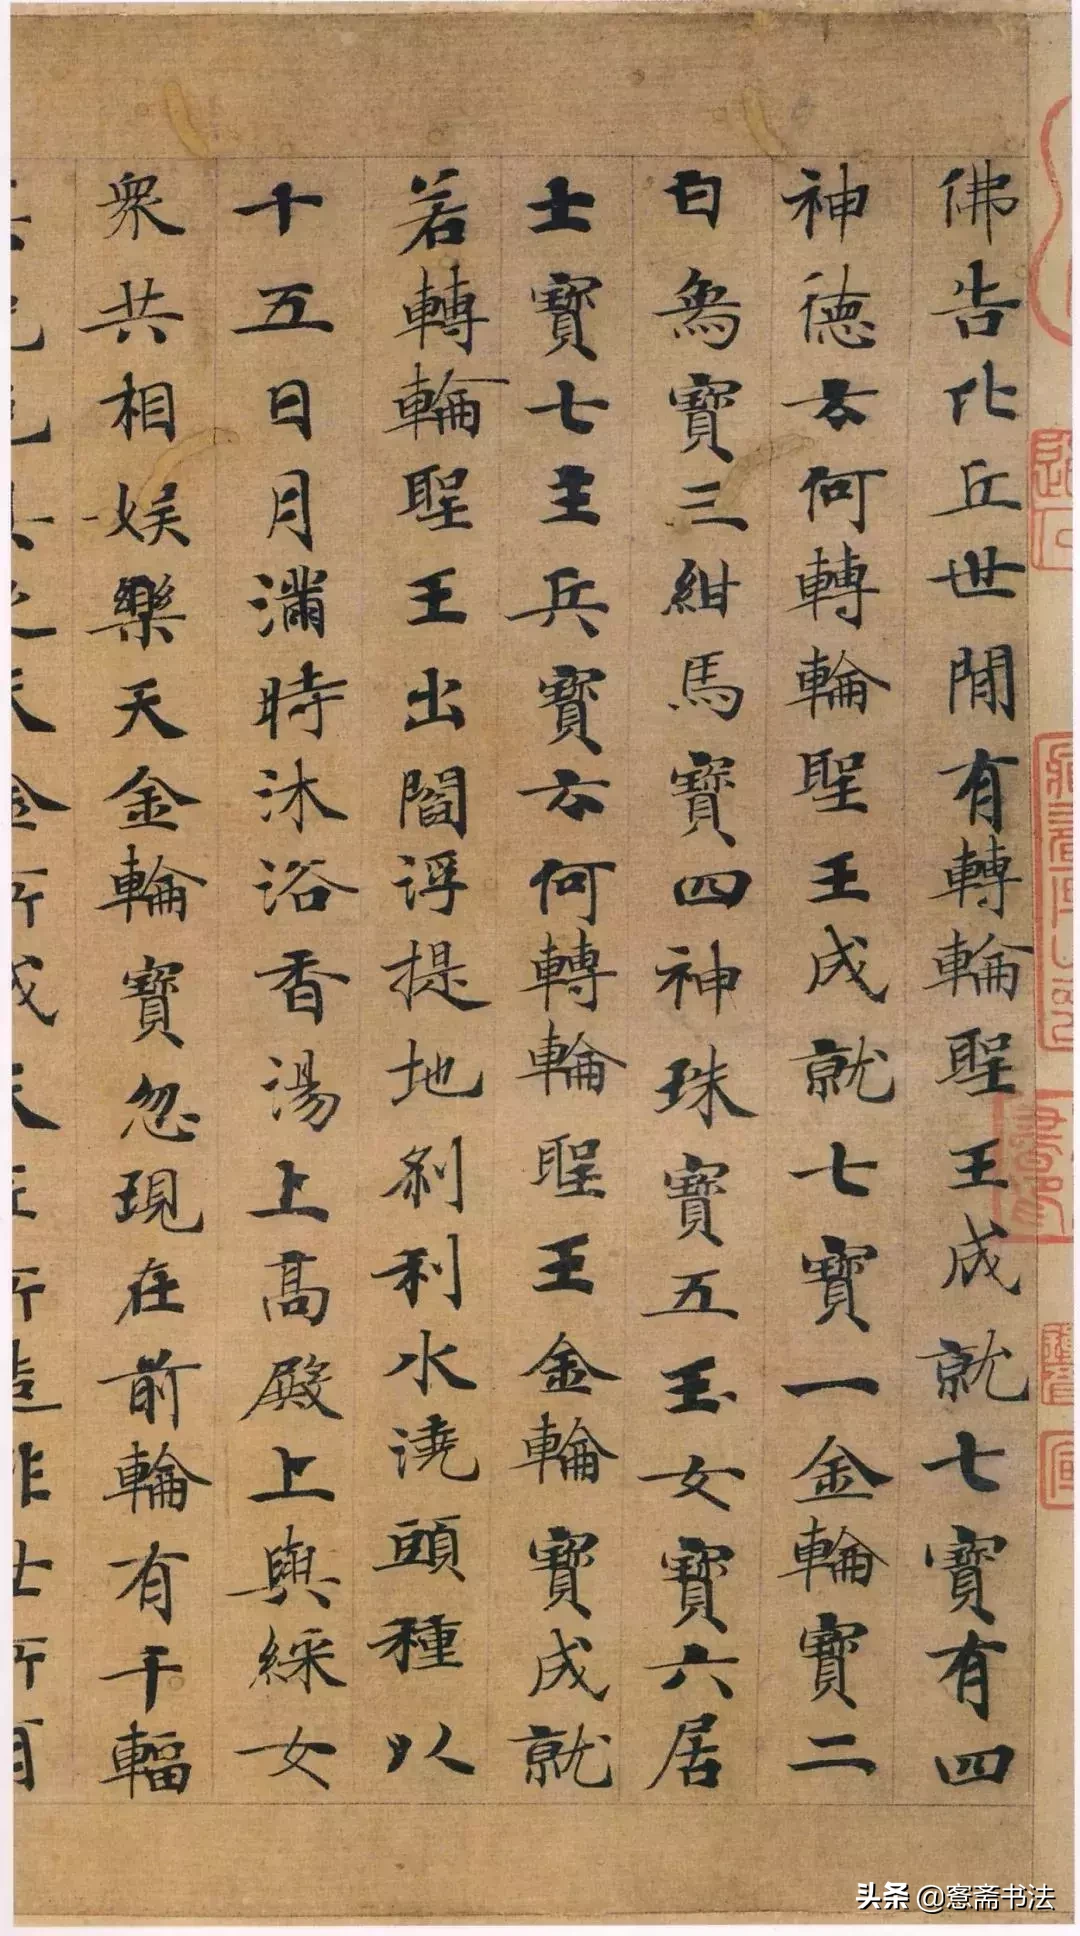 佛告比丘世閒有轉輪聖王成就七寶有四
神德云何轉輪聖王成就七寶一金輪寶二
白象寶三紺馬寶四神珠寶五玉女寶六居
士寶七主兵寶云何轉輪聖王金輪寶成就
若轉輪聖王出閻浮提地剎利水澆頭種以
十五日月滿時沐浴香湯上高殿上與綵女
衆共相娛樂天金輪寶忽現在前輪有千輻
天金所成天匠所造非世所有
头条 @愙斋书法